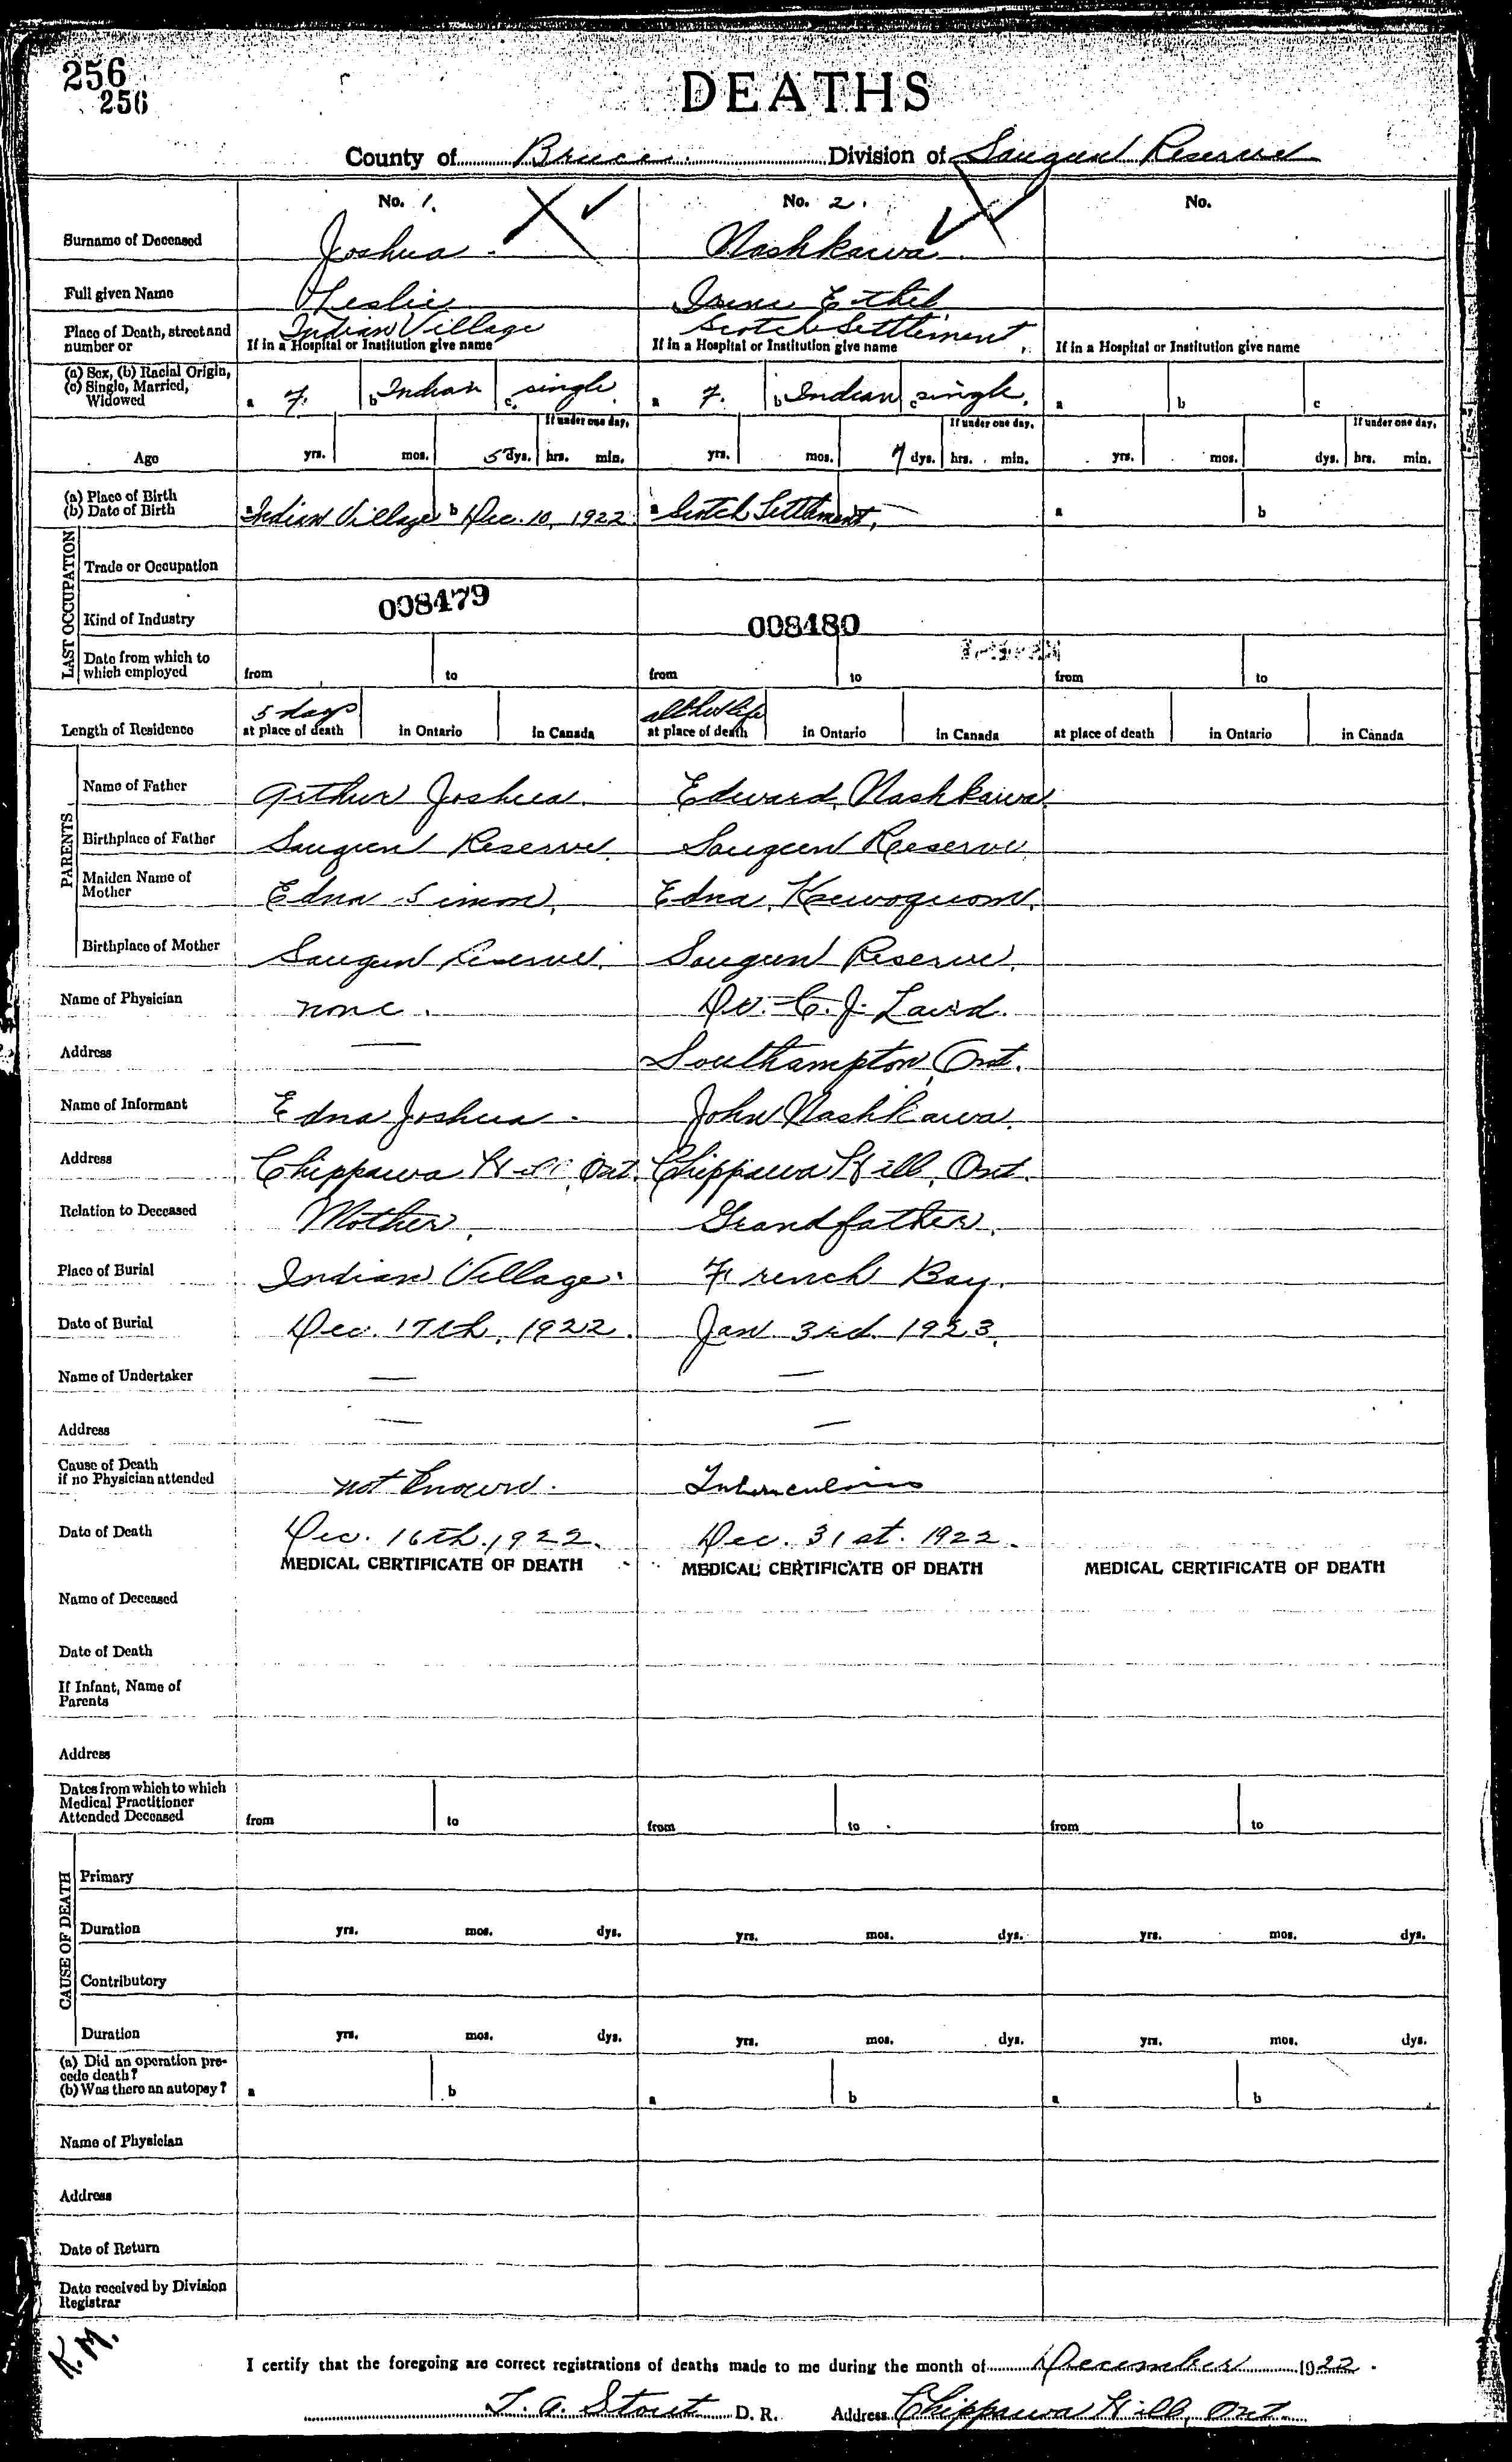 256
256
DEATHS
County of Bruce Division of Saugeen Reserve
No. 1. No. 2. No.
Surname of Deceased Joshua. Nashkawa.
Full given Name Leslie Irene Ethel
Place of Death, street and number or Indian Village Scotch Settlement,
If in a Hospital or Institution give name If in a Hospital or Institution give name If in a Hospital or Institution give name
(a) Sex, (b) Racial Origin, (c) Single, Married, Widowed a F. b Indian c. single. a F. b Indian c single. a b c
If under one day, If under one day, If under one day,
Age yrs. mos. 5 dys. hrs. min. yrs. mos. 7 dys. hrs. min. yrs. mos. dys. hrs. min.
(a) Place of Birth
(b) Date of Birth a Indian Village b Dec. 10, 1922 a Scotch Settlement, a b
LAST OCCUPATION
Trade or Occupation
Kind of Industry 008479 008480
Date from which to which employed from to from to from to
Length of Residence 5 days at place of death in Ontario in Canada all her life at place of death in Ontario in Canada at place of death in Ontario in Canada
PARENTS
Name of Father Arthur Joshua. Edward Nashkawa.
Birthplace of Father Saugeen Reserve. Saugeen Reserve.
Maiden Name of Mother Edna Simon. Edna Kewoquom.
Birthplace of Mother Saugeen Reserve. Saugeen Reserve.
Name of Physician none. Dr. C. J. Laird.
Address — Southampton, Ont.
Name of Informant Edna Joshua. John Nashkawa.
Address Chippawa Hill, Ont. Chippawa Hill, Ont.
Relation to Deceased Mother. Grandfather.
Place of Burial Indian Village. French Bay.
Date of Burial Dec. 17th, 1922. Jan. 3rd. 1923.
Name of Undertaker — —
Address — —
Cause of Death if no Physician attended not known. Tuberculosis
Date of Death Dec. 16th, 1922. Dec. 31st. 1922.
MEDICAL CERTIFICATE OF DEATH MEDICAL CERTIFICATE OF DEATH MEDICAL CERTIFICATE OF DEATH
Name of Deceased
Date of Death
If Infant, Name of Parents
Address
Dates from which to which Medical Practitioner Attended Deceased from to from to from to
CAUSE OF DEATH
Primary
Duration yrs. mos. dys. yrs. mos. dys. yrs. mos. dys.
Contributory
Duration yrs. mos. dys. yrs. mos. dys. yrs. mos. dys.
(a) Did an operation precede death?
(b) Was there an autopsy? a b a b a b
Name of Physician
Address
Date of Return
Date received by Division Registrar
K. M.
I certify that the foregoing are correct registrations of deaths made to me during the month of December 1922.
T. A. Stout D. R. Address Chippawa Hill, Ont.